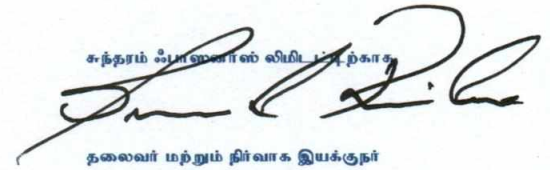 சுந்தரம் ஃபாஸனாஸ் லிமிடட்டிற்காக
தலைவர் மற்றும் நிர்வாக இயக்குநர்